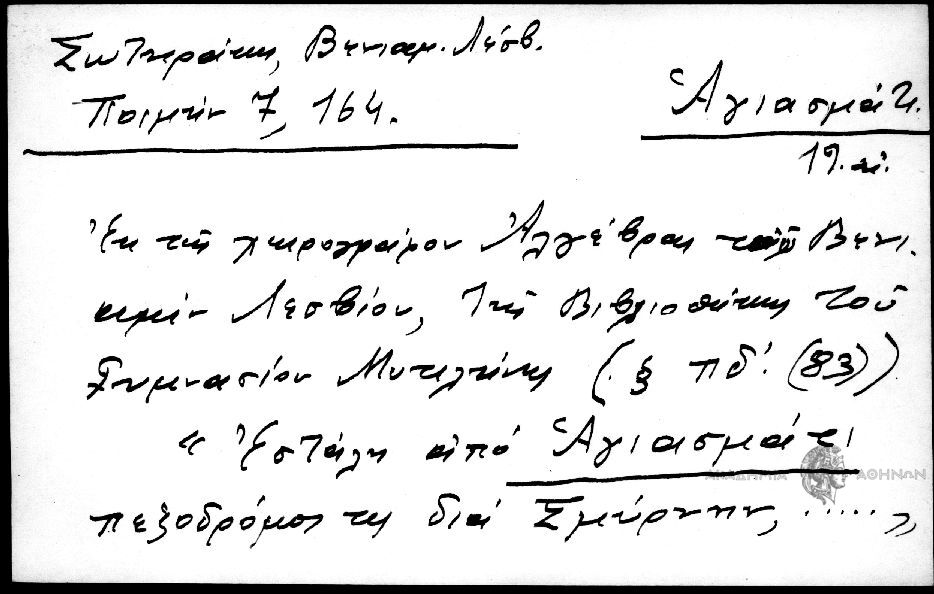 Σωτηράκη, Βενιαμ. Λέσβ.
Ποιμήν 7, 164.
Ἁγιασμάτι
19. αἰ.
Ἐκ τῆς χειρογράφου Ἀλγέβρας τοῦ Βενι-
αμὶν Λεσβίου, τῆς Βιβλιοθήκης τοῦ
Γυμνασίου Μυτιλήνης (§ πδ΄. (83))
« Ἐστάλη ἀπό Ἁγιασμάτι
πεζοδρόμος τις διά Σμύρνην, .....»
ΑΚΑΔΗΜΙΑ ΑΘΗΝΩΝ